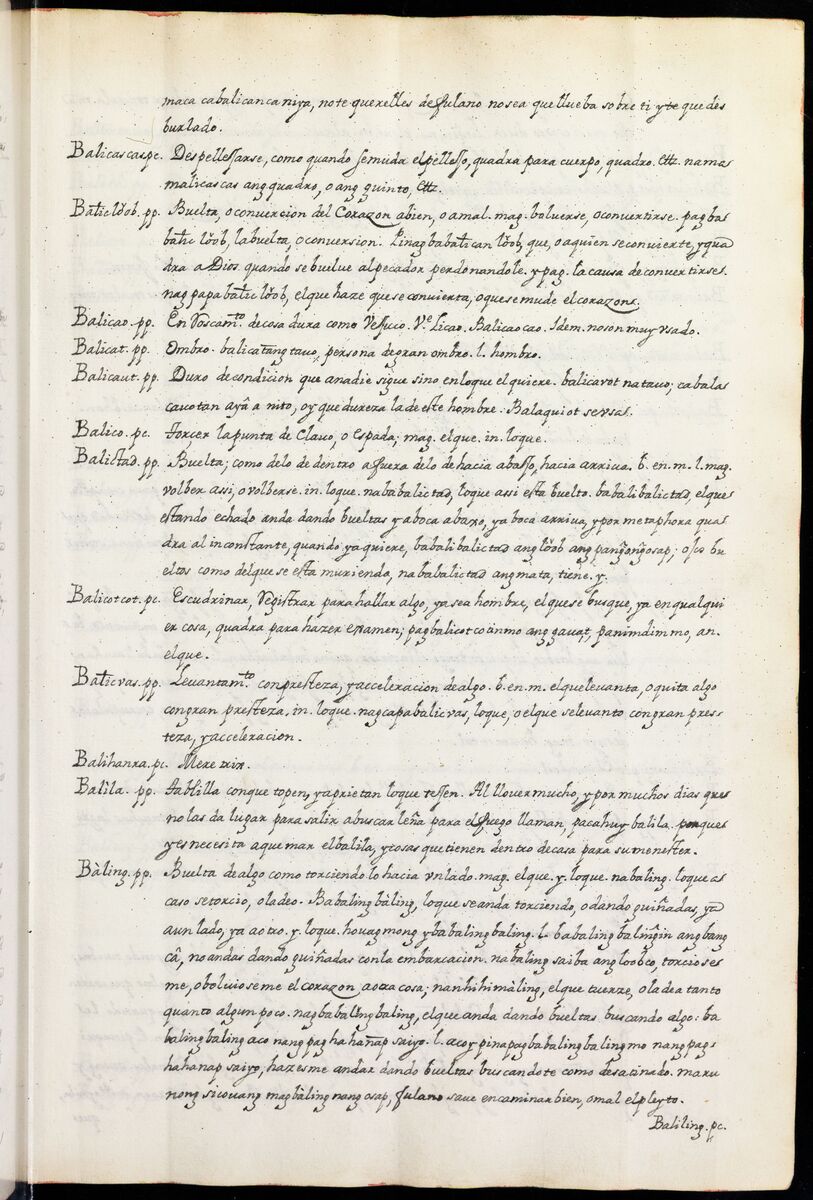 maca cabalicanca niya, no te querelles de fulano no sea que llueba sobre ti y te que des
burlado.
Balicascas pc. Despellessarse, como quando se muda el pellesso, quadra para cuerpo, quadro. &tz. nama
malicascas ang quadro, o ang quinto, &tz.
Balic lóób. pp. Buelta, o convercion del Corazon a bien, o a mal. mag. boluerse, o convertirse. pagba
balic lóób, la buelta, o conversion. Pinagbabalican lóób, que, o a quien se convierte, y qua
dra a Dios quando se buelue al pecador perdonandole. y pag. la causa de convertirse.
nagpapabalic lóób, el que haze que se convierta, o que se mude el corazon.
Balicao. pp. Enroscam.to de cosa dura como Vejuco. V.e Licao. Balicaocao. Idem. no son muy vsado.
Balicat. pp. Ombro. balicatang tauo, persona de gran ombro. l. hombro.
Balicaut. pp. Duro de condicion que a nadie sigue sino en lo que el quiere. balicavot na tauo; cabalas
cavotan ayâ a nito, o y que dureza la de este hombre. Balaquiot se vsa.
Balico. pc. torcer la punta de Clavo, o Espada; mag. el que. in. lo que.
Balictad. pp. Buelta; como de lo de dentro a fuera de lo de hacia abasso, hacia arriva. b. en. m. l. mag.
volber assi, o volberse. in. lo que. nababalictad, lo que assi esta buelto. babalibalictad, el que
estando echado anda dando bueltas ya boca abaxo, ya boca arriva, y por metaphora qua
dra al inconstante, quando ya quiere, babalibalictad ang lóób ang pangongosap; bu
eltos como del que se esta muriendo, nababalictad ang mata, tiene. y.
Balicotcot. pc. Escudrinar, Registrar para hallar algo, ya sea hombre, el que se busque, ya en qualqui
er cosa, quadra para hazer examen; pagbalicotcoanmo ang gauat, panimdim mo, an.
el que.
Balicvas. pp. Levantam.to con presteza, y acceleracion de algo. b. en. m. el que levanta, o quita algo
con gran presteza. in. lo que. nagcapabalicvas, lo que, o el que se levanto con gran pres-
teza, y acceleracion.
Balihanxa. pc. Merezrix.
Balìla. pp. tablilla con que topen, y aprietan lo que tessen. Al llover mucho, y por muchos dias que
no las da lugar para salir a buscar leña para el fuego llaman, pacahuy balila. porque
yes necesita a quemar el balila, y cosas que tienen dentro de casa para su menester.
Bàling. pp. Buelta de algo como torciendolo hacia vn lado. mag. el que. y. lo que. nabaling. lo que a
caso se torcio, o ladeo. Babaling bàling, lo que se anda torciendo, o dando guiñadas, ya
a un lado, ya a otro. y. lo que. houag mong ybabaling baling. l. babaling balingin ang bang
câ, no andas dando guiñadas con la embarcacion. nabaling sa iba ang loobco, torcioses
me, o boluioseme el corazon a otra cosa; nanhihimàling, el que tuerze, o ladea tanto
quanto algun poco. nagbabalìng baling, el que anda dando bueltas buscando algo: ba
baling baling aco nang paghahanap saiyo. l. acoy pinapagbabaling baling mo nang pag-
hahanap saiyo, hazesme andar dando bueltas buscandote como desatinado. maru
nong si couang magbàling nang osap, fulano saue encaminar bien, o mal el pleyto.
Baliling. pc.